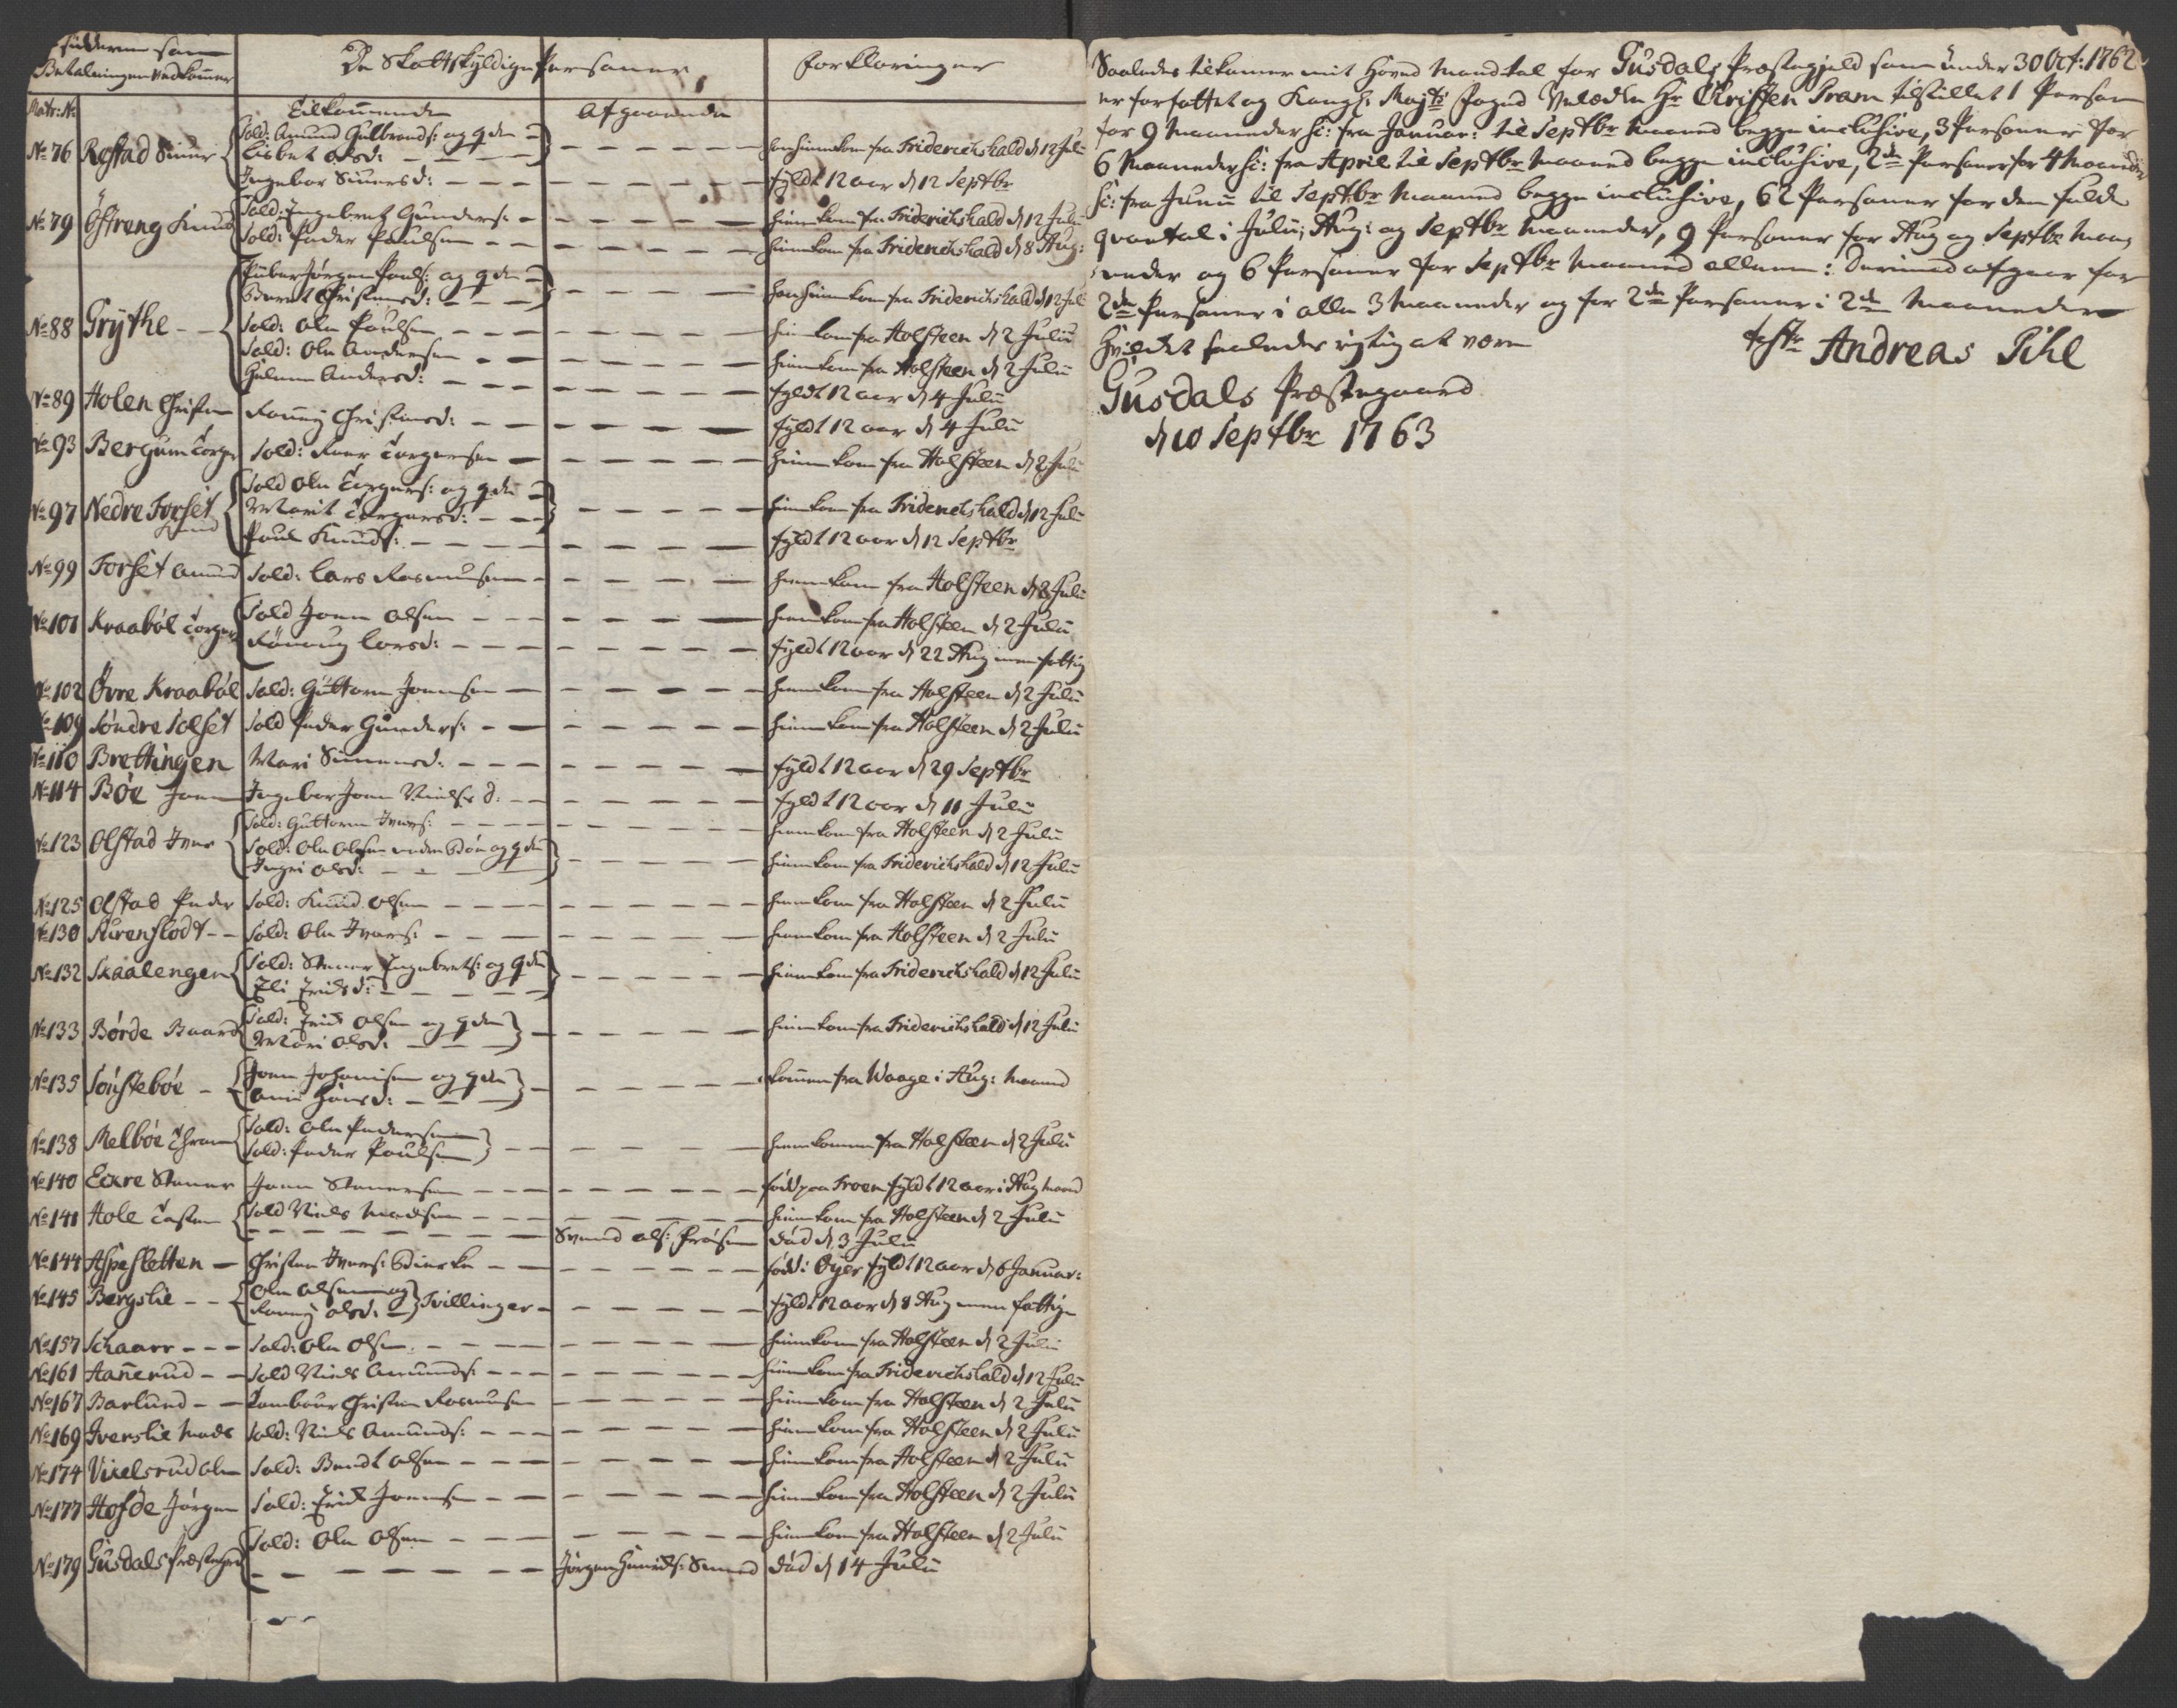 Betalningen vedkommer
De Skattskyldige Personer
Forklaringer
Matr: No
Tilkommende
Afgaaende
No 76 Restad Siver Sold: Amund Gulbrands: og qden
Lisbet olsd: han hiemkom fra Friderichshald d 12 Juli
Ingebor Siversd: fyldt 12 aar d 12 Septbr
No 79 Östreng Knud Sold: Ingebret Gunders: hiemkom fra Friderichshald d 12 Julii
Sold: Peder Poulsen hiemkom fra Friderichshald d 8 Aug:
No 88 Grÿthe Jörgen Pouls: og qden
Christensd: han hiemkom fra Friderichshald d 12 Jul
Sold: Ole Poulsen hiemkom fra Holsteen d 2 Julii
Sold: Ole Andersen hiemkom fra Holsteen d 2 Julii
Andersd: fyldt 12 aar d 4 Julii
No 89 Holen Christen Ronnoug Christensd: fyldt 12 aar d 4 Julii
No 93 Bergum Torger Sold: Torgersen hiemkom fra Holsteen d 2 Juli
No 97 Nedre Forset Knud Sold Ole Torgers: og qden
Marit Torgersd: hiemkom fra Friderichshald d 12 Juli
Poul Knuds: fyldt 12 aar d 12 Septbr
No 99 Forset Amund Sold: Lars Rasmusen hiemkom fra Holsteen d 2 Juli
No 101 Kraaböl Torger Sold Joen olsen hiemkom fra Holsteen d 2 Julii
Rönnoug Larsd: fyldt 12 aar d 22 Aug men fattig
No 102 Övre Kraaböl Sold: Guttorm Joensen hiemkom fra Holsteen d 2 Julii
No 109 Söndre Solset Sold Peder Gunders: hiemkom fra Holsteen d 2 Julii
No 110 Brettingen Mari Simensd: fyldt 12 aar d 29 Septbr
No 114 Böe Joen Ingebor Joen Nielsd: fyldt 12 aar d 11 Julii
No 123 Olstad Iver Sold: Guttorm Ivers: hiemkom fra Holsteen d 2 Julii
Sold: Ole Olsen Böe og qden
Ingri olsd: hiemkom fra Friderichshald d 12 Julii
No 125 Olstad Peder Sold: Knud Olsen hiemkom fra Holsteen d 2 Julii
No 130 Kurenslodt Sold: Ole Ivers: hiemkom fra Holsteen d 2 Julii
No 132 Skaalengen Sold: Stener Ingebrets: og qden
Eli Ericsd: hiemkom fra Friderichshald d 12 Julii
No 133 Börde Baard Sold: Erich Olsen og qden
Mari olsd: hiemkom fra Friderichshald d 12 Julii
No 135 Söusteböe Joen Johannisen og qden
kommen fra Waage i Aug: Maaned
No 138 Melböe Sold: Ole Pedersen
Sold: Peder Poulsen hiemkommen fra Holsteen d 2 Julii
No 140 Eckre Stener Joen Stenersen föd paa Froen fyldt 12 aar i Aug Maaned
No 141 Hole Sold Niels Madsen hiemkom fra Holsteen d 2 Julii
Svend ols: död d 3 Julii
No 144 Aspesletten Christen Ivers: föd i Öyer fyldt 12 aar d 6 Januar:
No 145 Bergslie Ole Olsen og
Ronnoug olsd: Tvillinger fyldt 12 aar d 8 Aug men fattige
No 157 Schaarr Sold: Ole Olsen hiemkom fra Holsteen d 2 Julii
No 161 Hannerud Sold Niels Amunds: hiemkom fra Friderichshald d 12 Julii
No 167 Barlund Tambour Christen Rasmusen hiemkom fra Holsteen d 2 Julii
No 169 Iverslie Mads Sold: Niels Amunds: hiemkom fra Holsteen d 2 Julii
No 174 Vixelsrud Ole Sold: Bendt olsen hiemkom fra Holsteen d 2 Julii
No 177 Hofde Jörgen Sold: Erich Joensen hiemkom fra Holsteen d 2 Julii
No 179 Gusdals Præstegrd Sold: Ole Olsen hiemkom fra Holsteen d 2 Julii
Jörgen död d 14 Julii
Saaledes tilkommer mit Hoved Mandtal for Gusdals Præstegjeld som under 30 Oct: 1762
er forfattet og Kongl: Majts Foged Velædle Hr Christen Pram tilstillet 1 Person
for 9 Maaneder h: fra Januar: til Septbr Maaned begge inclusive, 3 Personer for
6 Maaneder h: fra April til Septbr Maaned begge inclusive, 2de Personer for 4 Maaneder
h: fra Junii til Septbr Maaned begge inclusive, 62 Personer for den fulde
qvartal i Julii, Aug: og Septbr Maaneder, 9 Personer for Aug og Septbr Maa¬
neder og 6 Personer for Septbr Maaned allene: Derimod afgaar for
2de Personer i alle 3 Maaneder og for 2de Personer i 2de Maaneder
Hvilket saaledes rigtig at være
test: Andreas Pihl
Gusdals Præstegaard
d 10 Septbr 1763